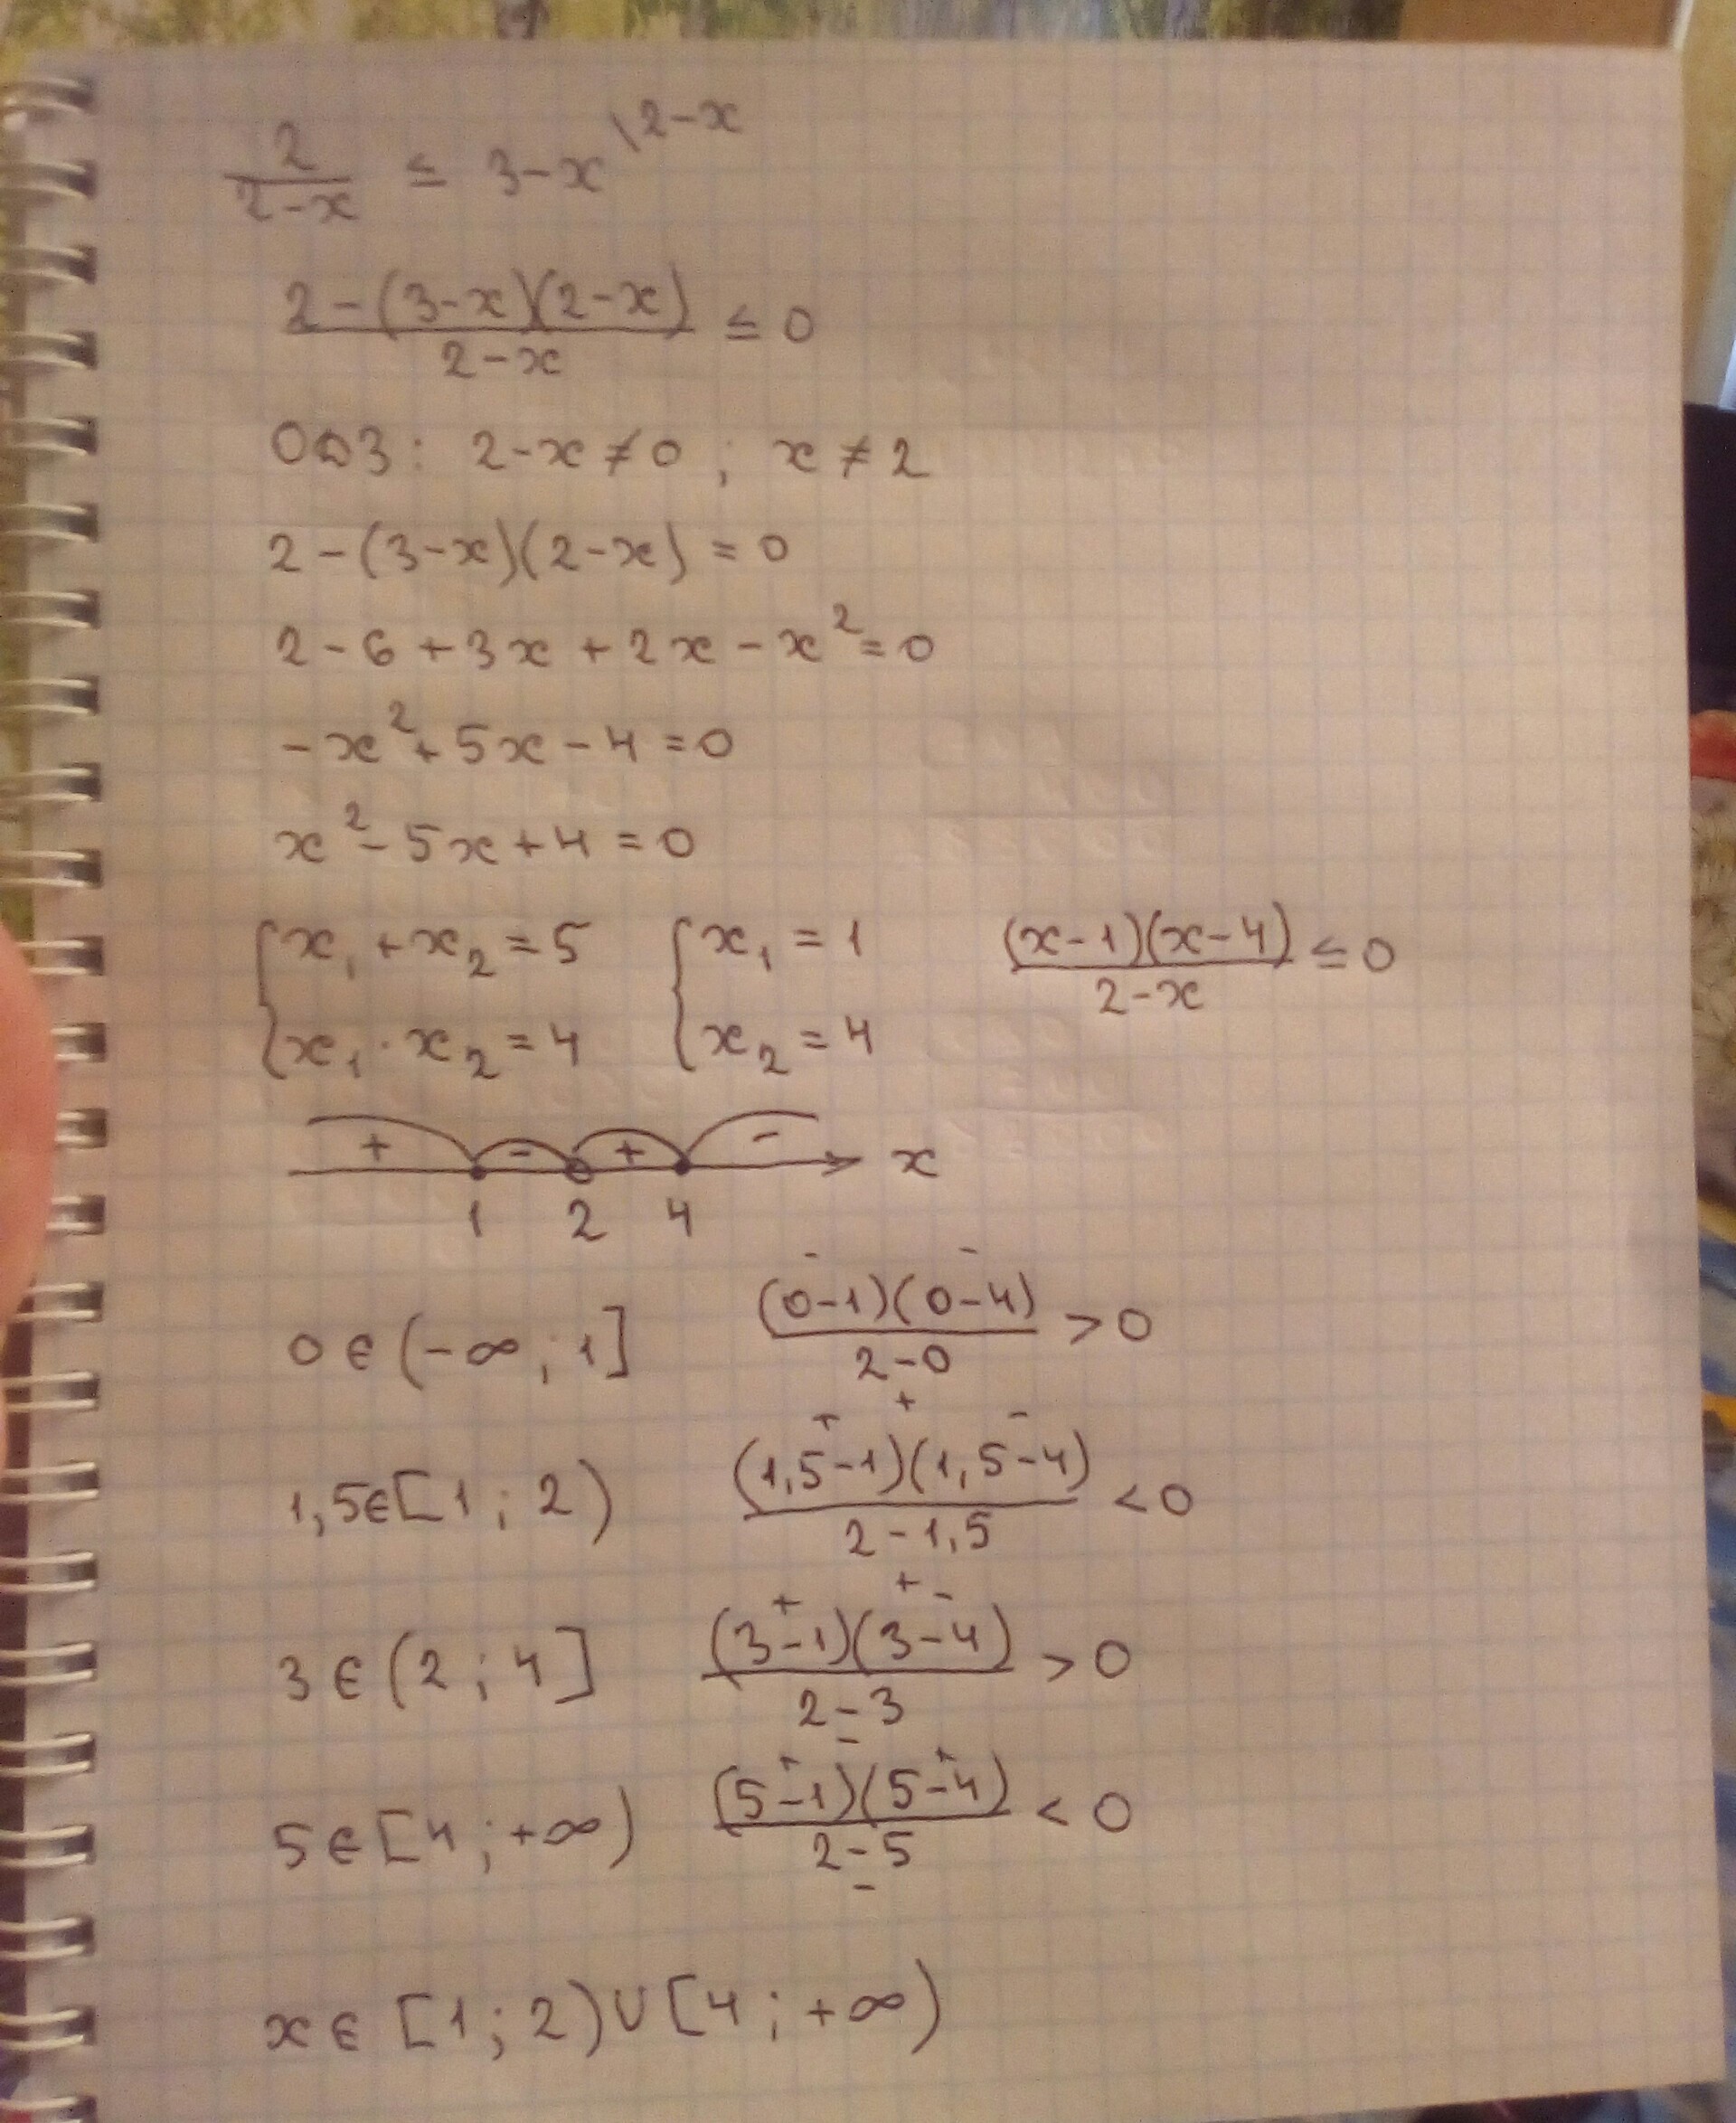 2/(2-x) ≤ 3-x \2-x
(2-(3-x)(2-x))/(2-x) ≤ 0
ОДЗ: 2-x≠0 ; x≠2
2-(3-x)(2-x)=0
2-6+3x+2x-x²=0
-x²+5x-4=0
x²-5x+4=0
{x₁+x₂=5 {x₁=1 ((x-1)(x-4))/(2-x) ≤ 0
{x₁·x₂=4 {x₂=4
+ - + - x
1 2 4
- -
0∈(-∞;1] ((0-1)(0-4))/(2-0) > 0
+
+ -
1,5∈[1;2) ((1,5-1)(1,5-4))/(2-1,5) < 0
+
+ -
3∈(2;4] ((3-1)(3-4))/(2-3) > 0
-
+ +
5∈[4;+∞) ((5-1)(5-4))/(2-5) < 0
-
x∈[1;2)∪[4;+∞)